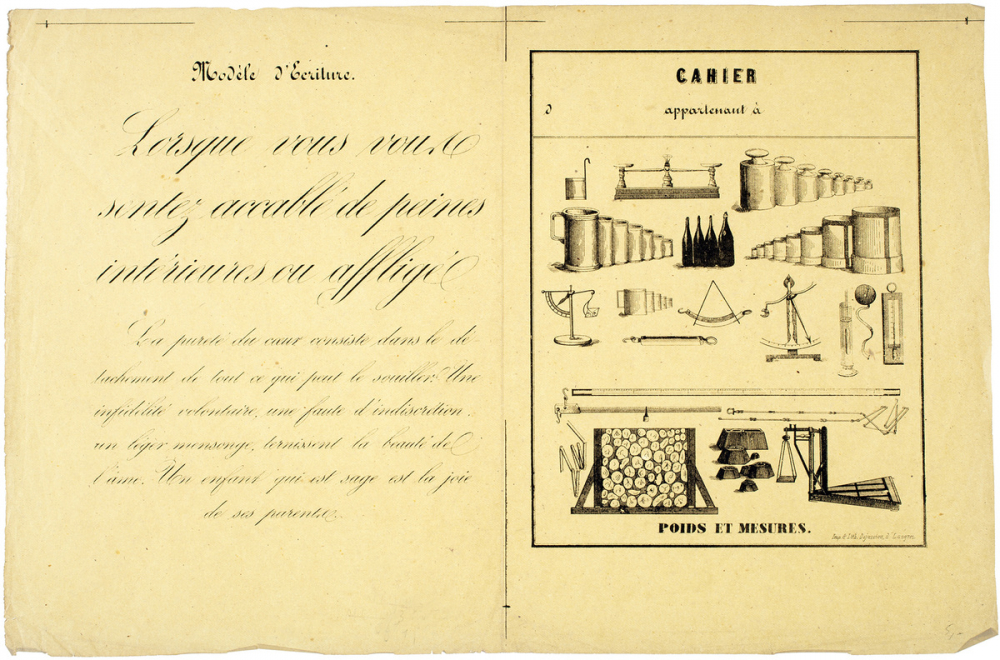 Modèle d'Ecriture.
Lorsque vous vous
sentez accablé de peines
intérieures ou affligé
La pureté du cœur consiste dans le dé-
tachement de tout ce qui peut le souiller. Une
infidélité volontaire, une faute d'indiscrétion,
un léger mensonge, ternissent la beauté de
l'âme. Un enfant qui est sage est la joie
de ses parents.
CAHIER
d appartenant à
POIDS ET MESURES.
Imp. & Lith.